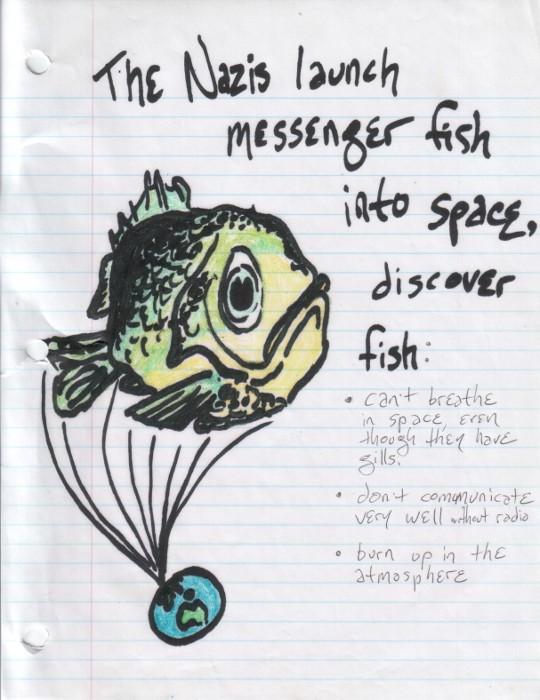 The Nazis launch
messenger fish
into space,
discover
fish:
• can't breathe
in space, even
though they have
gills.
• don't communicate
very well without radio
• burn up in the
atmosphere